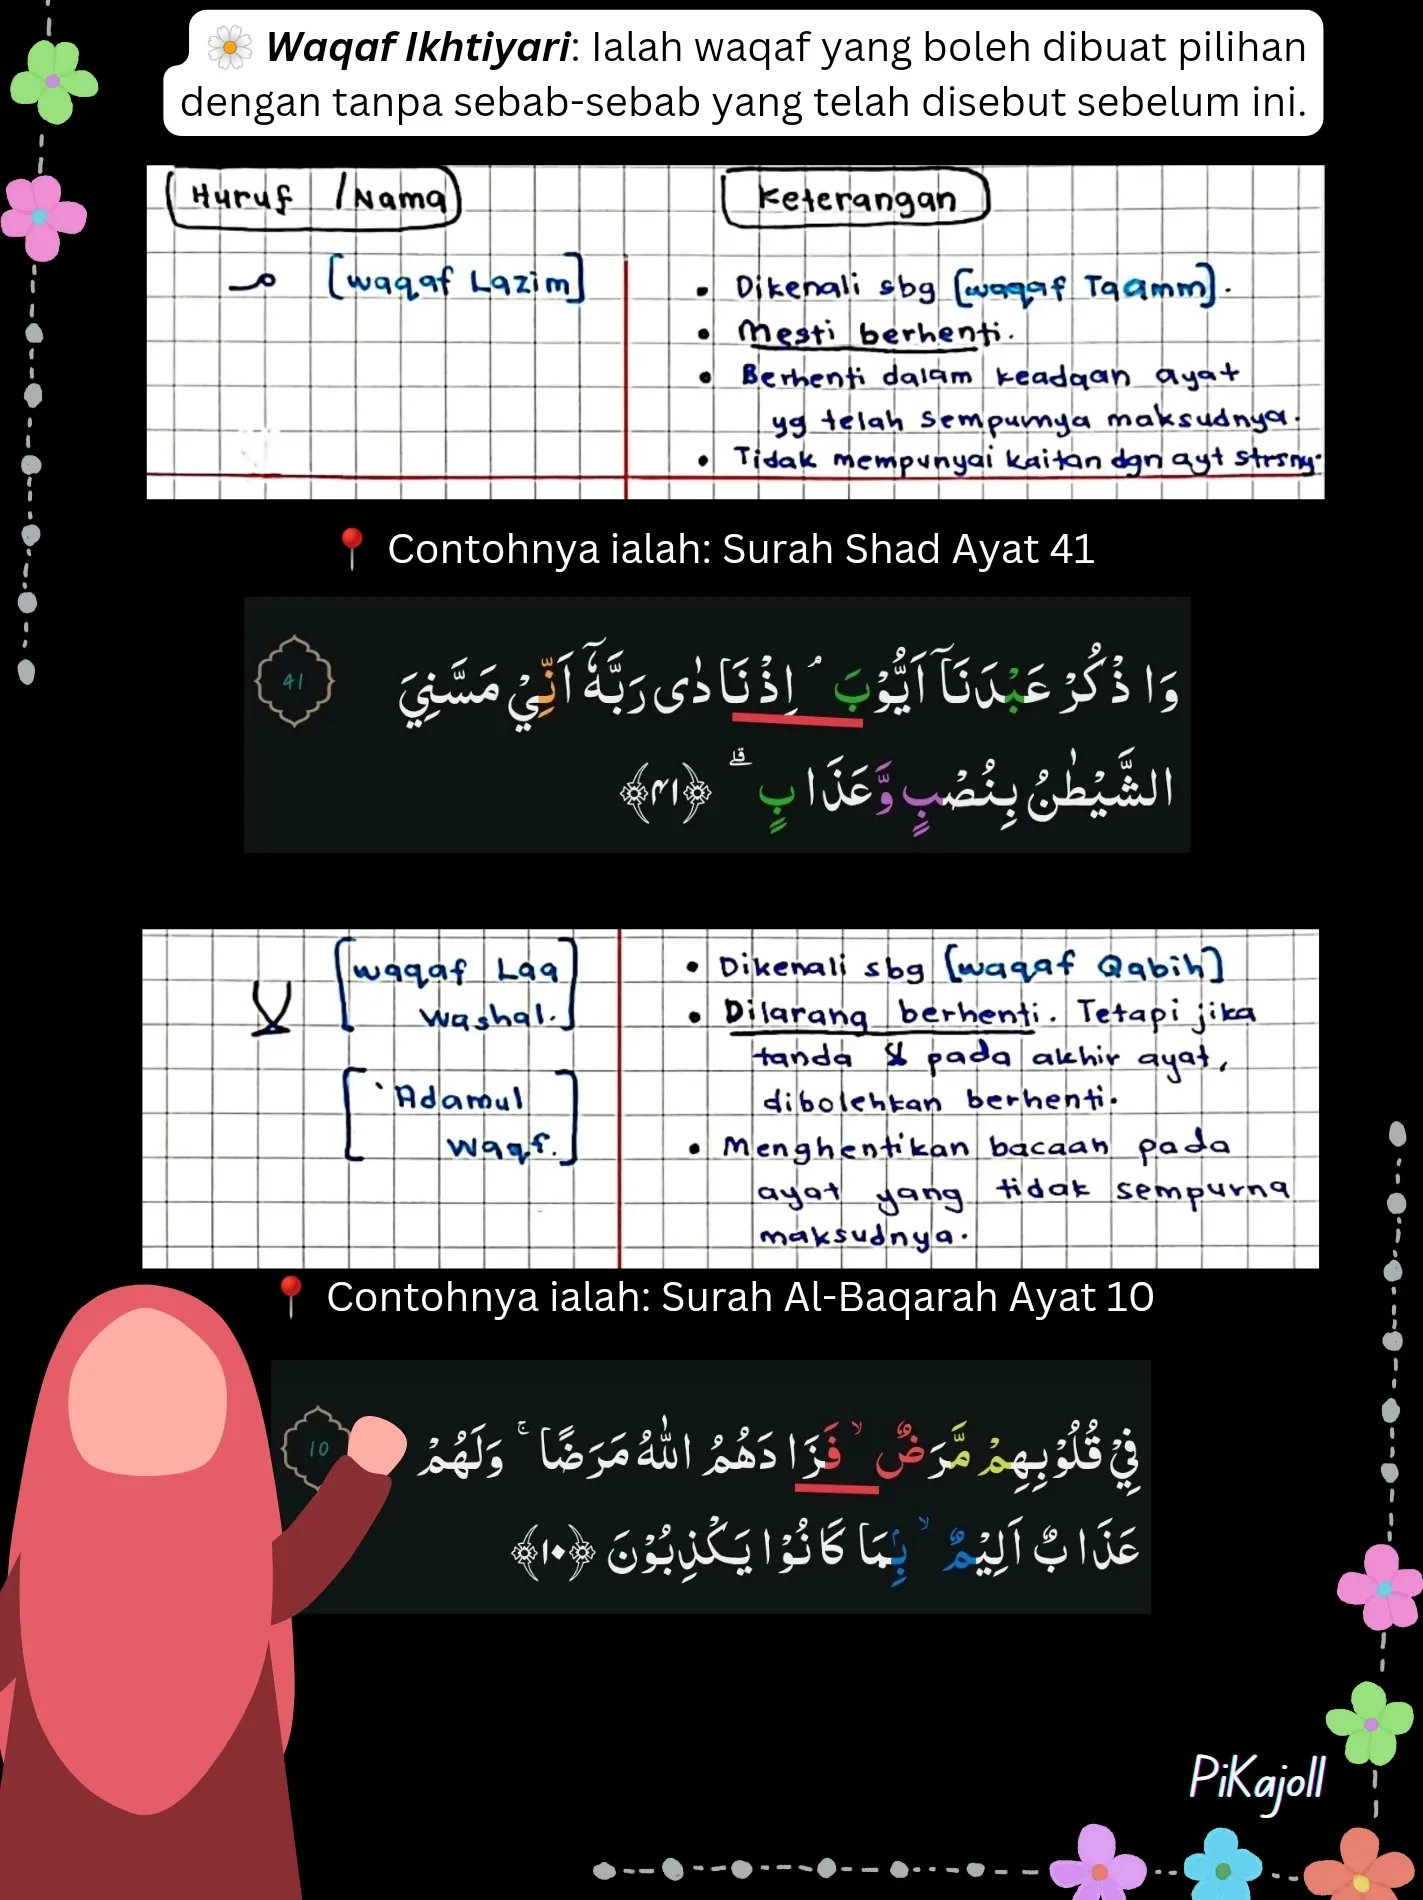 Waqaf Ikhtiyari: Ialah waqaf yang boleh dibuat pilihan
dengan tanpa sebab-sebab yang telah disebut sebelum ini.
Huruf / Nama
Keterangan
مـ [waqaf Lazim]
• Dikenali sbg [waqaf Taamm].
• Mesti berhenti.
• Berhenti dalam keadaan ayat
yg telah sempurnya maksudnya.
• Tidak mempunyai kaitan dgn ayt strsny.
Contohnya ialah: Surah Shad Ayat 41
وَاذْكُرْ عَبْدَنَآ اَيُّوْبَ ۘ اِذْ نَادٰى رَبَّهٗٓ اَنِّيْ مَسَّنِيَ
41
الشَّيْطٰنُ بِنُصْبٍ وَّعَذَابٍ ۗ ﴿٤١﴾
لا [waqaf Laa
washal.]
['Adamul
waqf.]
• Dikenali sbg [waqaf Qabih]
• Dilarang berhenti. Tetapi jika
tanda لا pada akhir ayat,
dibolehkan berhenti.
• Menghentikan bacaan pada
ayat yang tidak sempurna
maksudnya.
Contohnya ialah: Surah Al-Baqarah Ayat 10
فِيْ قُلُوْبِهِمْ مَّرَضٌ ۙ فَزَادَهُمُ اللّٰهُ مَرَضًا ۚ وَلَهُمْ
10
عَذَابٌ اَلِيْمٌ ۙ بِۢمَا كَانُوْا يَكْذِبُوْنَ ﴿١٠﴾
PiKajoll